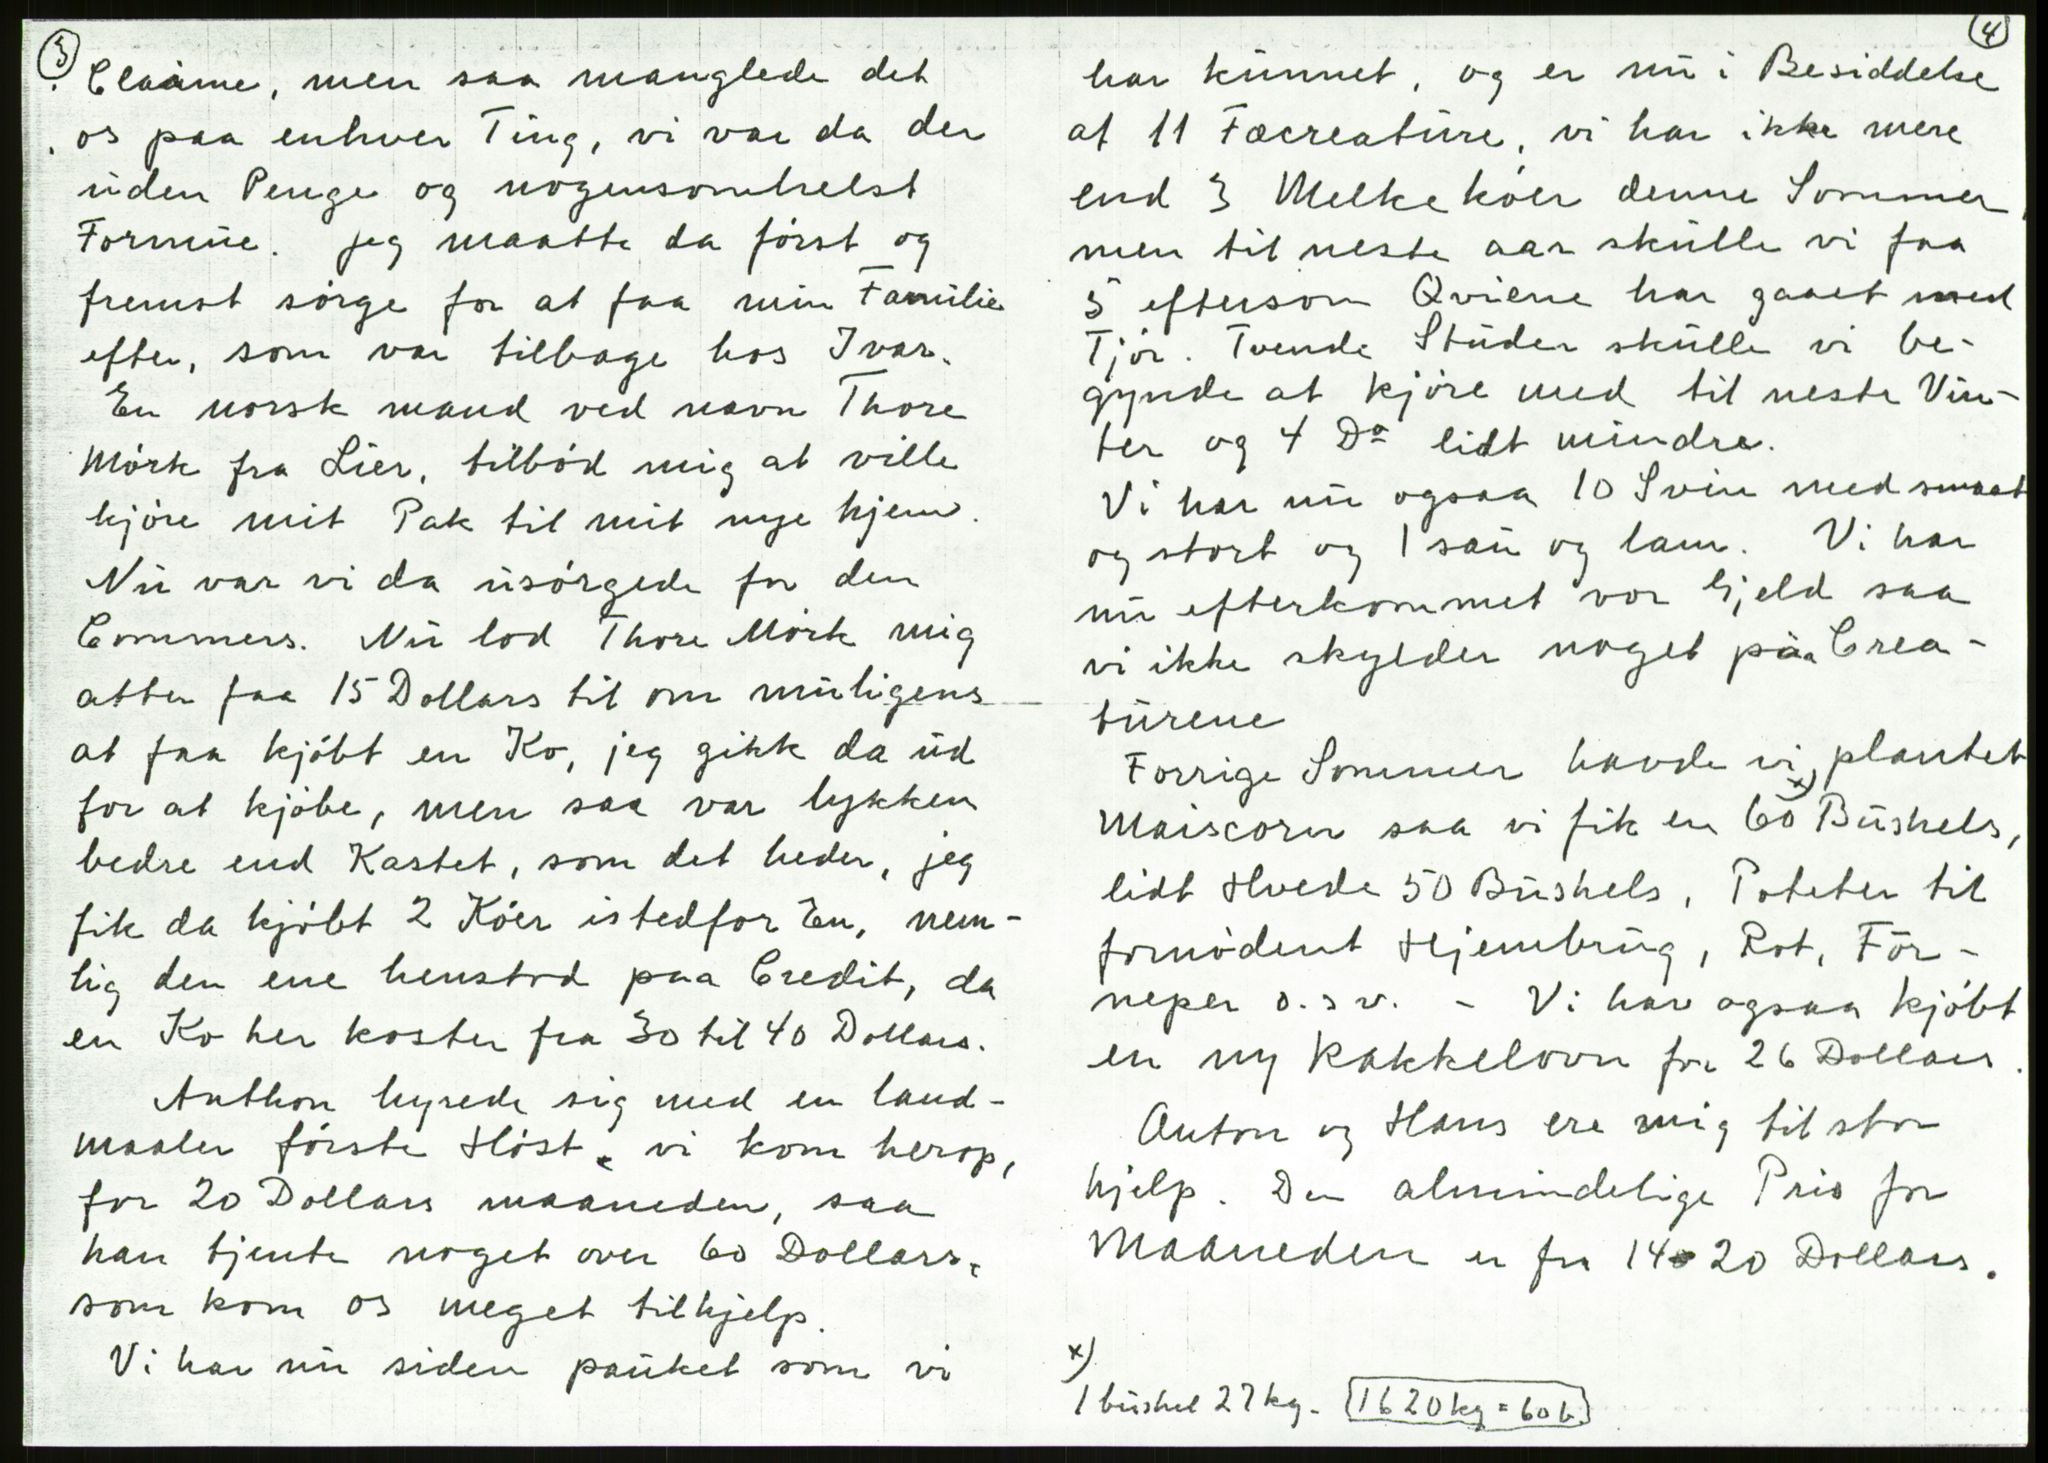 3
Claime, men saa manglede det
os paa enhver Ting, vi var da der
uden Penge og nogensomhelst
Formue. jeg maatte da först og
fremst sörge for at faa min Familie
efter, som var tilbage hos Ivar.
En norsk mand ved navn Thore
Mörk fra Lier, tilböd mig at ville
kjöre mit Pak til mit nye hjem.
Nu var vi da usörgede for den
Commers. Nu lod Thore Mörk mig
atter faa 15 Dollars til om muligens
at faa kjöbt en Ko, jeg gikk da ud
for at kjöbe, men saa var lykken
bedre end Kastet, som det heder, jeg
fik da kjöbt 2 Köer istedfor En, nem-
lig den ene henstod paa Credit, da
en Ko her koster fra 30 til 40 Dollars.
Anthon hyrede sig med en land-
maaler förste Höst, vi kom herop,
for 20 Dollars maaneden, saa
han tjente noget over 60 Dollars,
som kom os meget tilhjelp.
Vi har nu siden pauket som vi
4
har kunnet, og er nu i Besiddelse
af 11 Fæcreature, vi har ikke mere
end 3 Melkeköer denne Sommer,
men til neste aar skulle vi faa
5 eftersom Qviene har gaaet med
Tjör. Tvende Studer skulle vi be-
gynde at kjöre med til neste Vin-
ter og 4 Do lidt mindre.
Vi har nu ogsaa 10 Svin med smaat
og stort og 1 sau og lam. Vi har
nu efterkommet vor Gjeld saa
vi ikke skylder noget paa Crea-
turene
Forrige Sommer havde vi plantet
Maiscorn saa vi fik en 60 x) Bushels,
lidt Hvede 50 Bushels, Poteter til
fornödent Hjembrug, Rot, För-
neper o.s v. - Vi har ogsaa kjöbt
en ny Kakkelovn for 26 Dollars.
Anton og Hans ere mig til stor
hjelp. Den almindelige Pris for
Maaneden er fra 14 20 Dollars.
x)
1 bushel 27 kg. 1620 kg = 60 b.